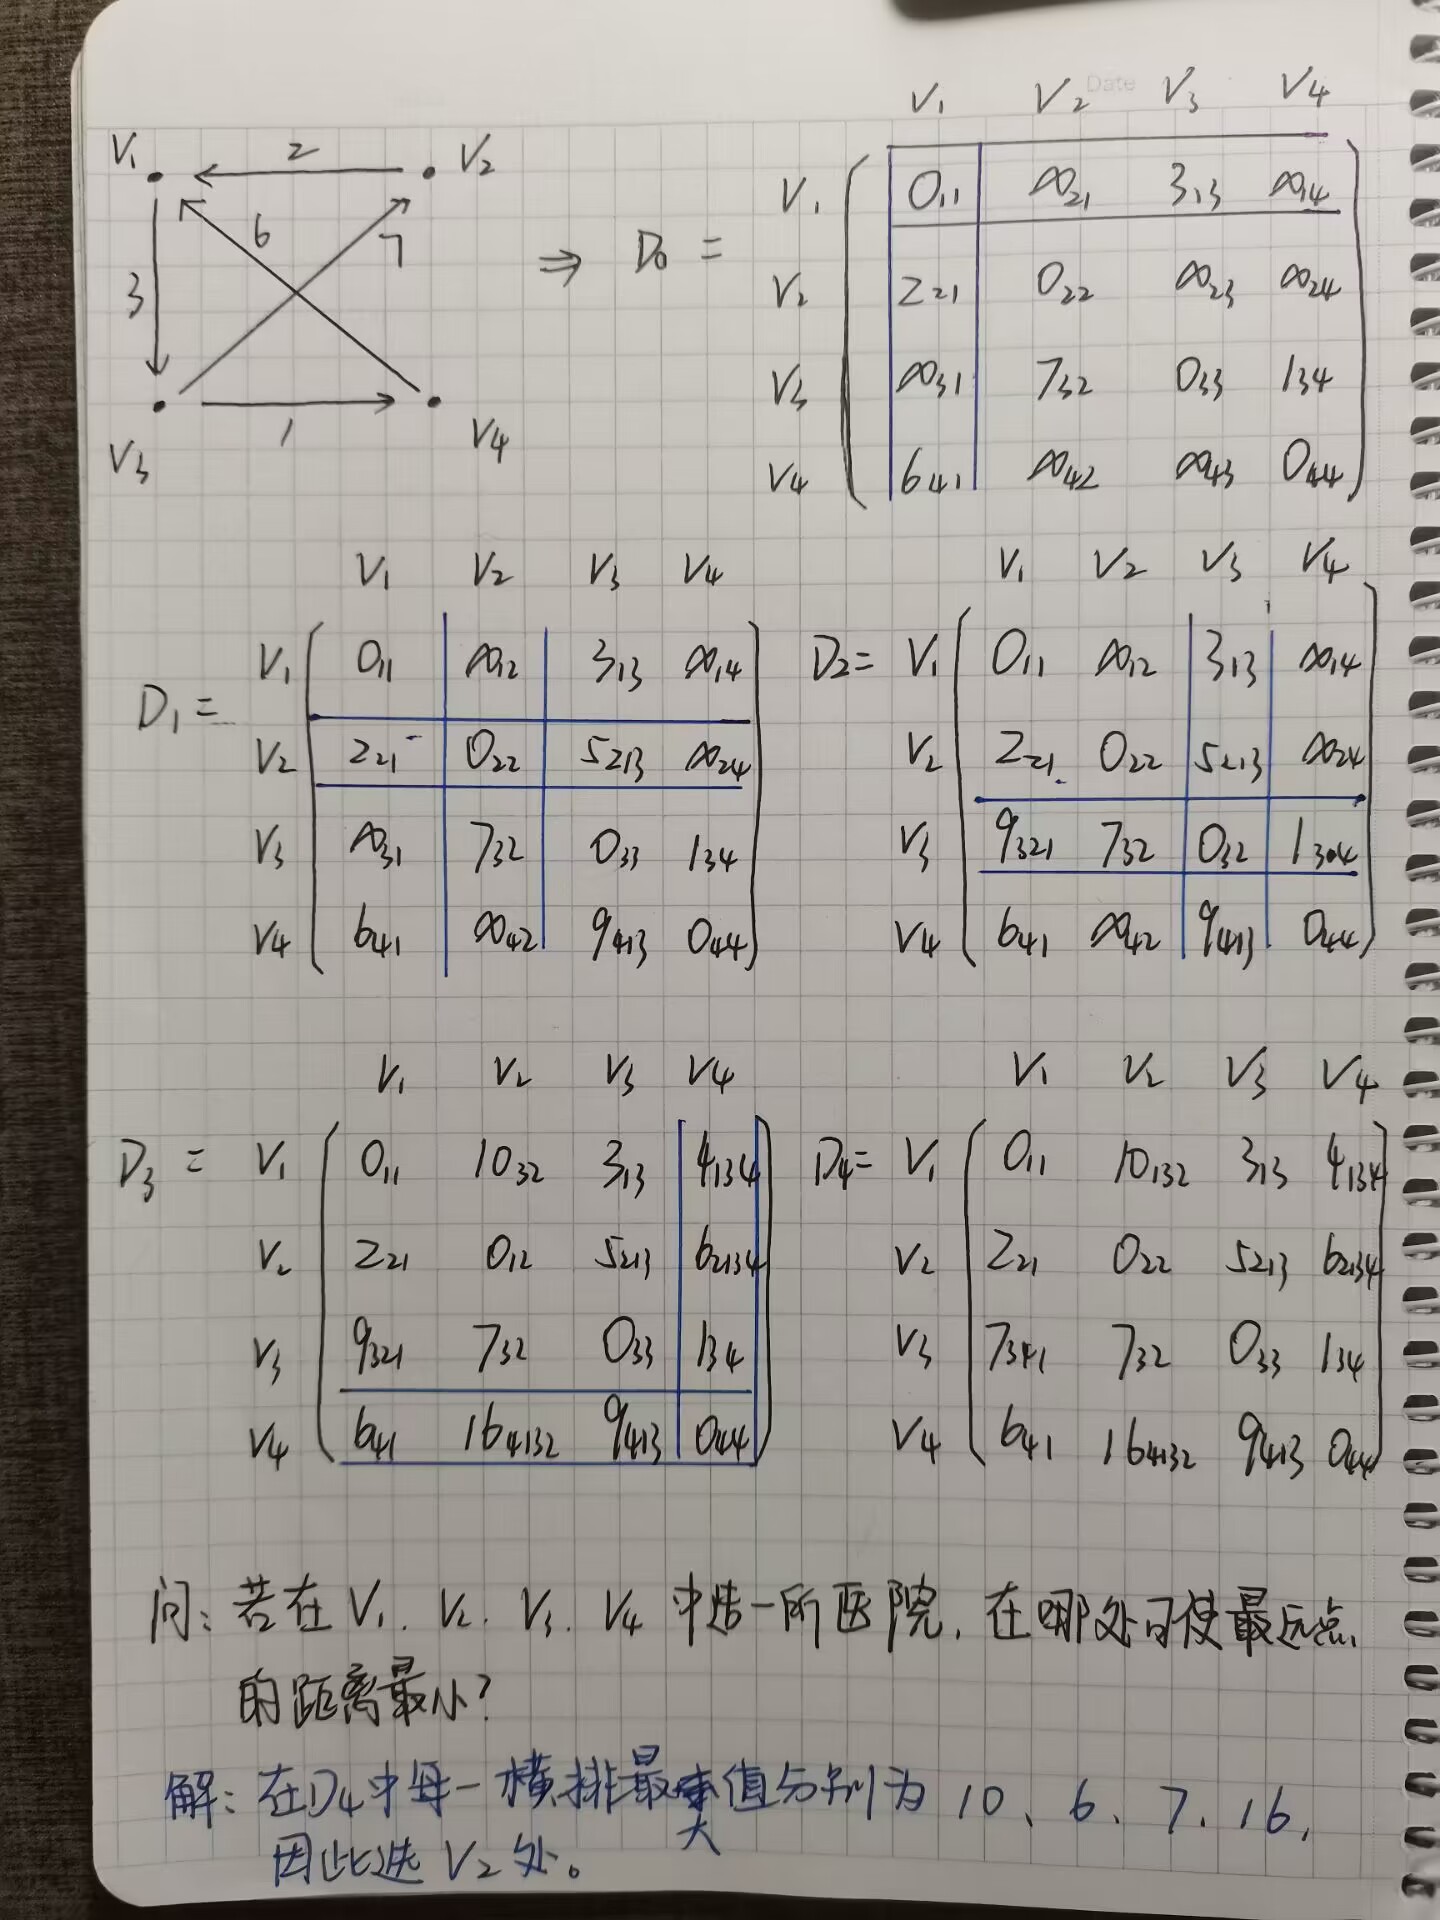 Date
V₁ V₂ V₃ V₄
V₁ 2 V₂
3 6 7
V₃ 1 V₄
⇒ D₀ =
V₁ 0₁₁ ∞₂₁ 3₁₃ ∞₁₄
V₂ 2₂₁ 0₂₂ ∞₂₃ ∞₂₄
V₃ ∞₃₁ 7₃₂ 0₃₃ 1₃₄
V₄ 6₄₁ ∞₄₂ ∞₄₃ 0₄₄
V₁ V₂ V₃ V₄
D₁ =
V₁ 0₁₁ ∞₁₂ 3₁₃ ∞₁₄
V₂ 2₂₁ 0₂₂ 5₂₁₃ ∞₂₄
V₃ ∞₃₁ 7₃₂ 0₃₃ 1₃₄
V₄ 6₄₁ ∞₄₂ 9₄₁₃ 0₄₄
V₁ V₂ V₃ V₄
D₂= V₁ 0₁₁ ∞₁₂ 3₁₃ ∞₁₄
V₂ 2₂₁ 0₂₂ 5₂₁₃ ∞₂₄
V₃ 9₃₂₁ 7₃₂ 0₃₂
V₄ 6₄₁ ∞₄₂ 9₄₁₃ 0₄₄
V₁ V₂ V₃ V₄
D₃ = V₁ 0₁₁ 10₃₂ 3₁₃ 4₁₃₄
V₂ 2₂₁ 0₁₂ 5₂₁₃ 6₂₁₃₄
V₃ 9₃₂₁ 7₃₂ 0₃₃ 1₃₄
V₄ 6₄₁ 16₄₁₃₂ 9₄₁₃ 0₄₄
V₁ V₂ V₃ V₄
D₄= V₁ 0₁₁ 10₁₃₂ 3₁₃ 4₁₃₄
V₂ 2₂₁ 0₂₂ 5₂₁₃ 6₂₁₃₄
V₃ 7₃₄₁ 7₃₂ 0₃₃ 1₃₄
V₄ 6₄₁ 16₄₁₃₂ 9₄₁₃ 0₄₄
问：若在V₁. V₂. V₃. V₄ 中选一所医院, 在哪处可使最远点
的距离最小?
解：在D₄中每一横排最大值分别为 10、6、7、16,
因此选V₂处。